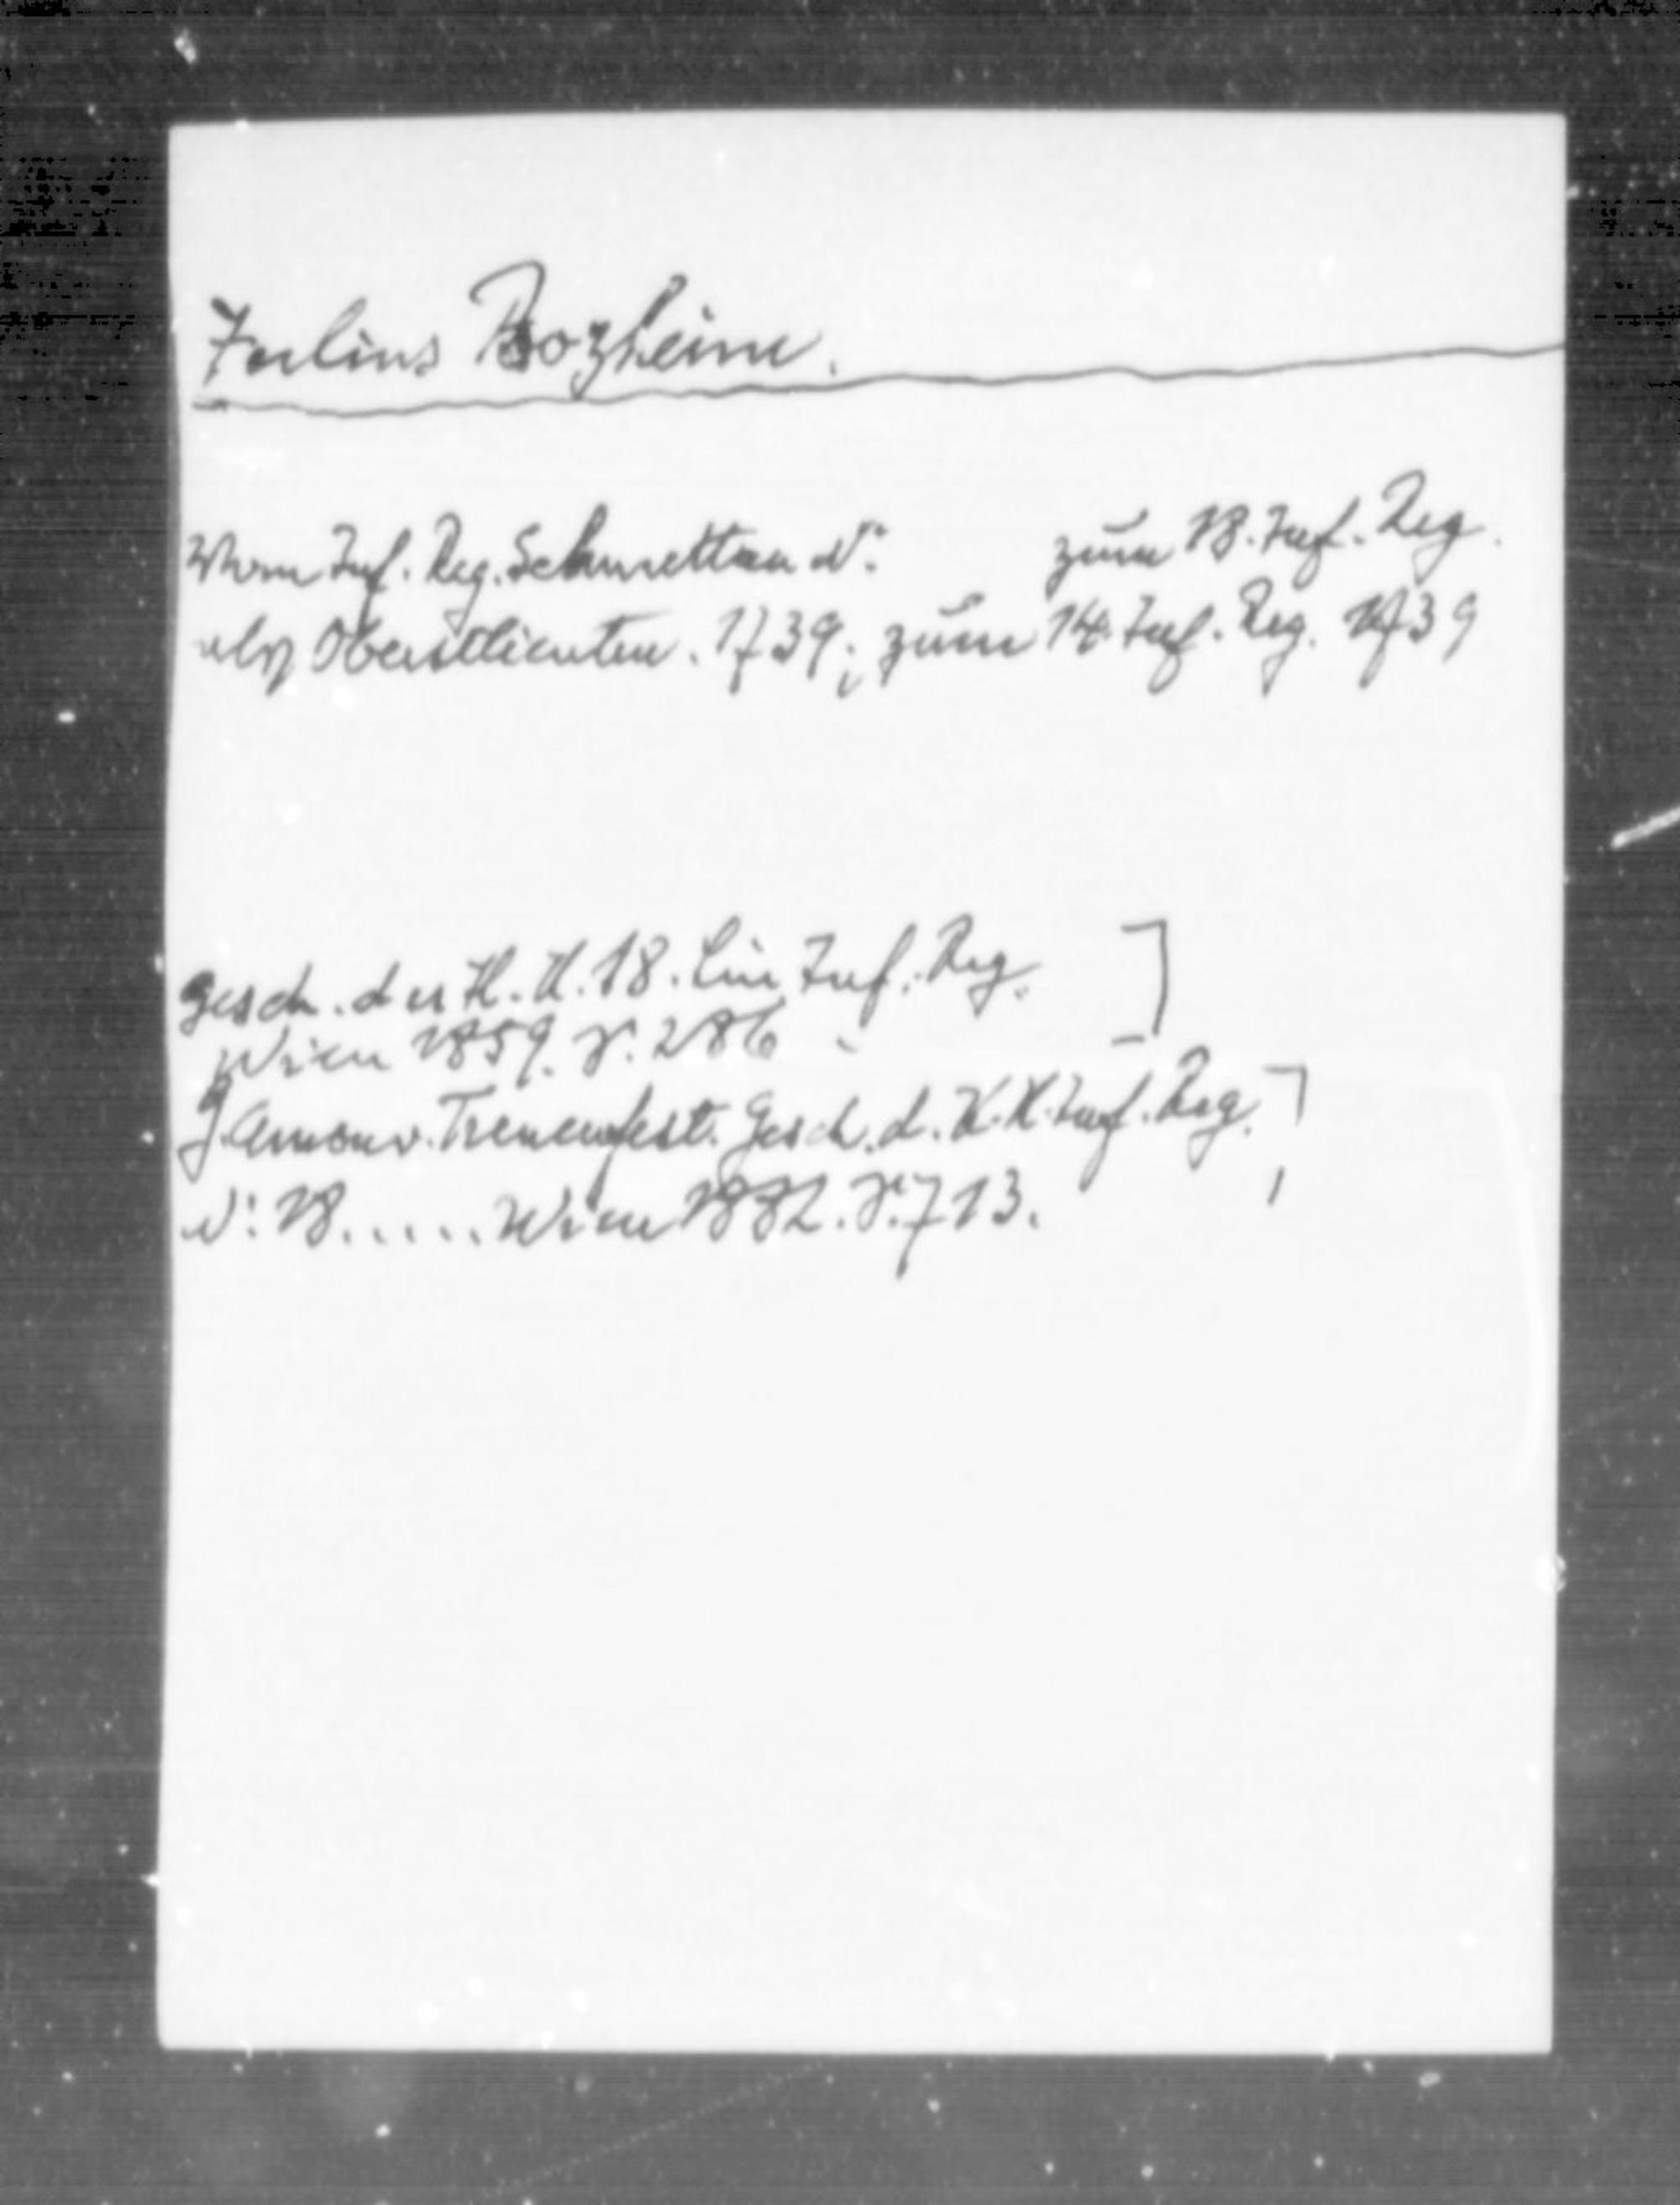 Julius Bozheim.
Vom Inf. Reg. Schmettau N: zum 18. Inf. Reg.
als Oberstlieuten. 1739; zum 14. Inf. Reg. 1739
Gesch. des K. K. 18. Lin Inf. Reg. ]
Wien 1859. S. 286
G. Amon v. Treuenfest. Gesch. d. K. K. Inf. Reg. ]
N: 18..... Wien 1882. S. 713.